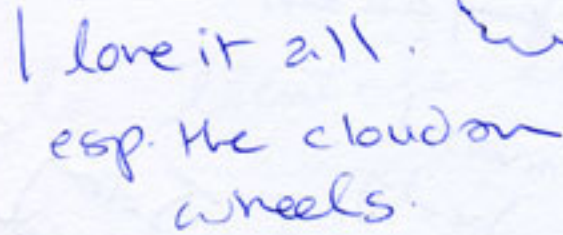 I love it all.
esp. the cloud on
wheels.